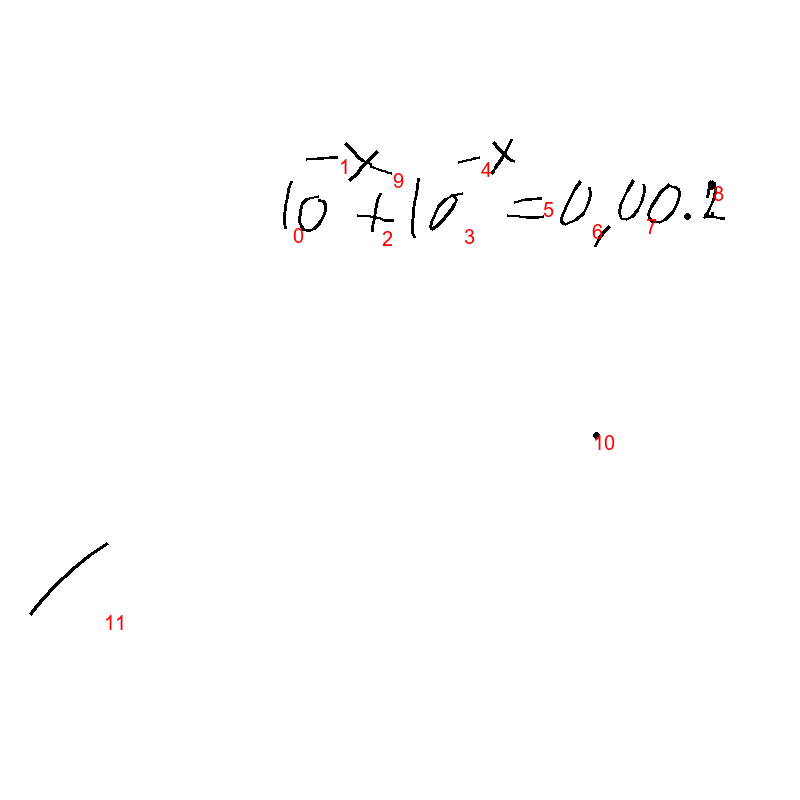 10^{-x} + 10^{-x} = 0,00.2
0
1
9
2
3
4
5
6
7
8
10
11